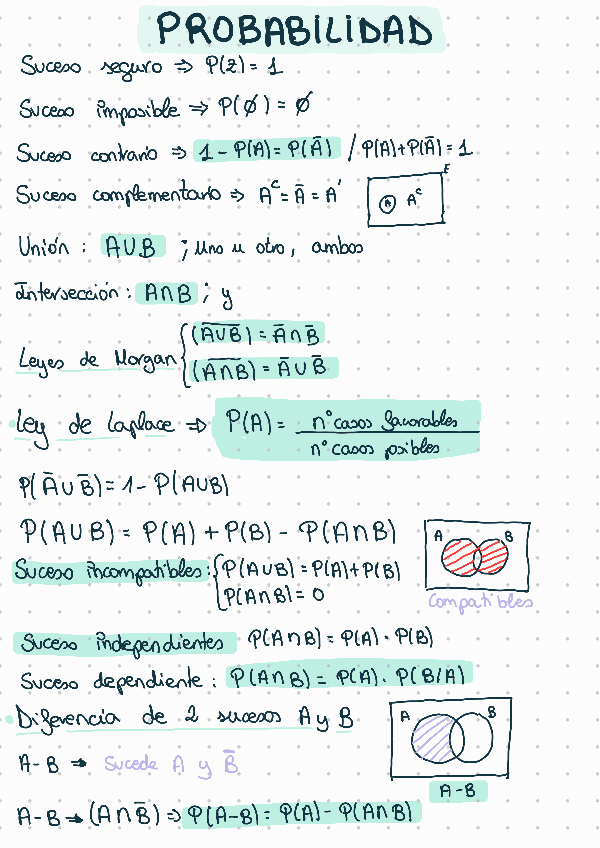 PROBABILIDAD
Suceso seguro => P(z) = 1
Suceso imposible => P(∅) = ∅
Suceso contrario => 1 - P(A) = P(Ā) / P(A)+P(Ā) = 1
Suceso complementario => Aᶜ = Ā = A'
E
A Aᶜ
Unión : A∪B ; Uno u otro, ambos
Intersección : A∩B ; y
Leyes de Morgan
(A̅∪̅B̅) = Ā∩B̄
(A̅∩̅B̅) = Ā∪B̄
Ley de Laplace => P(A) = nº casos favorables
nº casos posibles
P(Ā∪B̄) = 1 - P(A∪B)
P(A∪B) = P(A) + P(B) - P(A∩B)
A B
Compatibles
Suceso incompatibles : P(A∪B) = P(A)+P(B)
P(A∩B) = 0
Suceso independientes P(A∩B) = P(A) · P(B)
Suceso dependiente : P(A∩B) = P(A) · P(B/A)
Diferencia de 2 sucesos A y B
A B
A-B
A-B → Sucede A y B̄
A-B → (A∩B̄) => P(A-B) = P(A) - P(A∩B)